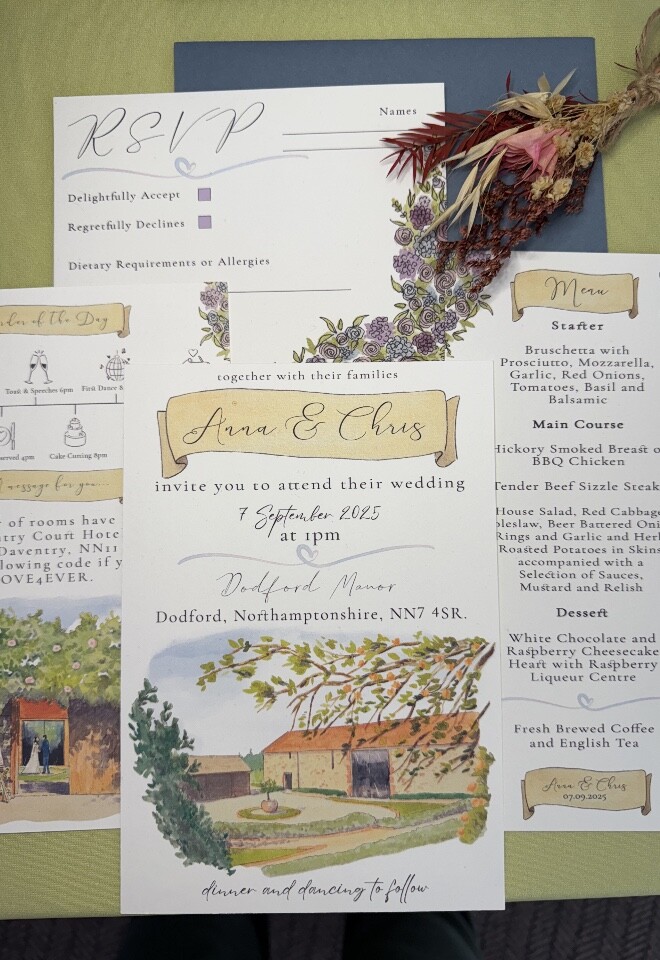 RSVP
Names
Delightfully Accept
Regretfully Declines
Dietary Requirements or Allergies
of the Day
Toast & Speeches 6pm
First Dance &
served 4pm
Cake Cutting 8pm
message for you...
of rooms have
Court
Daventry, NN11
code if
OVE4EVER.
together with their families
Anna & Chris
invite you to attend their wedding
7 September 2025
at 1pm
Dodford Manor
Dodford, Northamptonshire, NN7 4SR.
dinner and dancing to follow
Menu
Starter
Bruschetta with
Prosciutto, Mozzarella,
Garlic, Red Onions,
Tomatoes, Basil and
Balsamic
Main Course
Hickory Smoked Breast of
BBQ Chicken
Tender Beef Sizzle Steak
House Salad, Red Cabbage
Coleslaw, Beer Battered Onion
Rings and Garlic and Herb
Roasted Potatoes in Skins
accompanied with a
Selection of Sauces,
Mustard and Relish
Dessert
White Chocolate and
Raspberry Cheesecake
Heart with Raspberry
Liqueur Centre
Fresh Brewed Coffee
and English Tea
Anna & Chris
07.09.2025